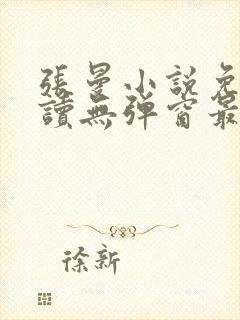 張曼小說免
讀無彈窗最
徐新